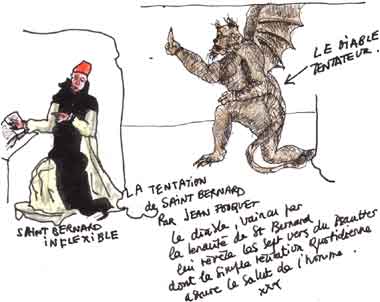 LE DIABLE
TENTATEUR.
SAINT BERNARD
INFLEXIBLE
LA TENTATION
de SAINT BERNARD
PAR JEAN FOUQUET
Le diable, vaincu par
la tenacité de St Bernard
lui révèle les sept vers du Psautier
dont la simple récitation quotidienne
assure le salut de l'homme.